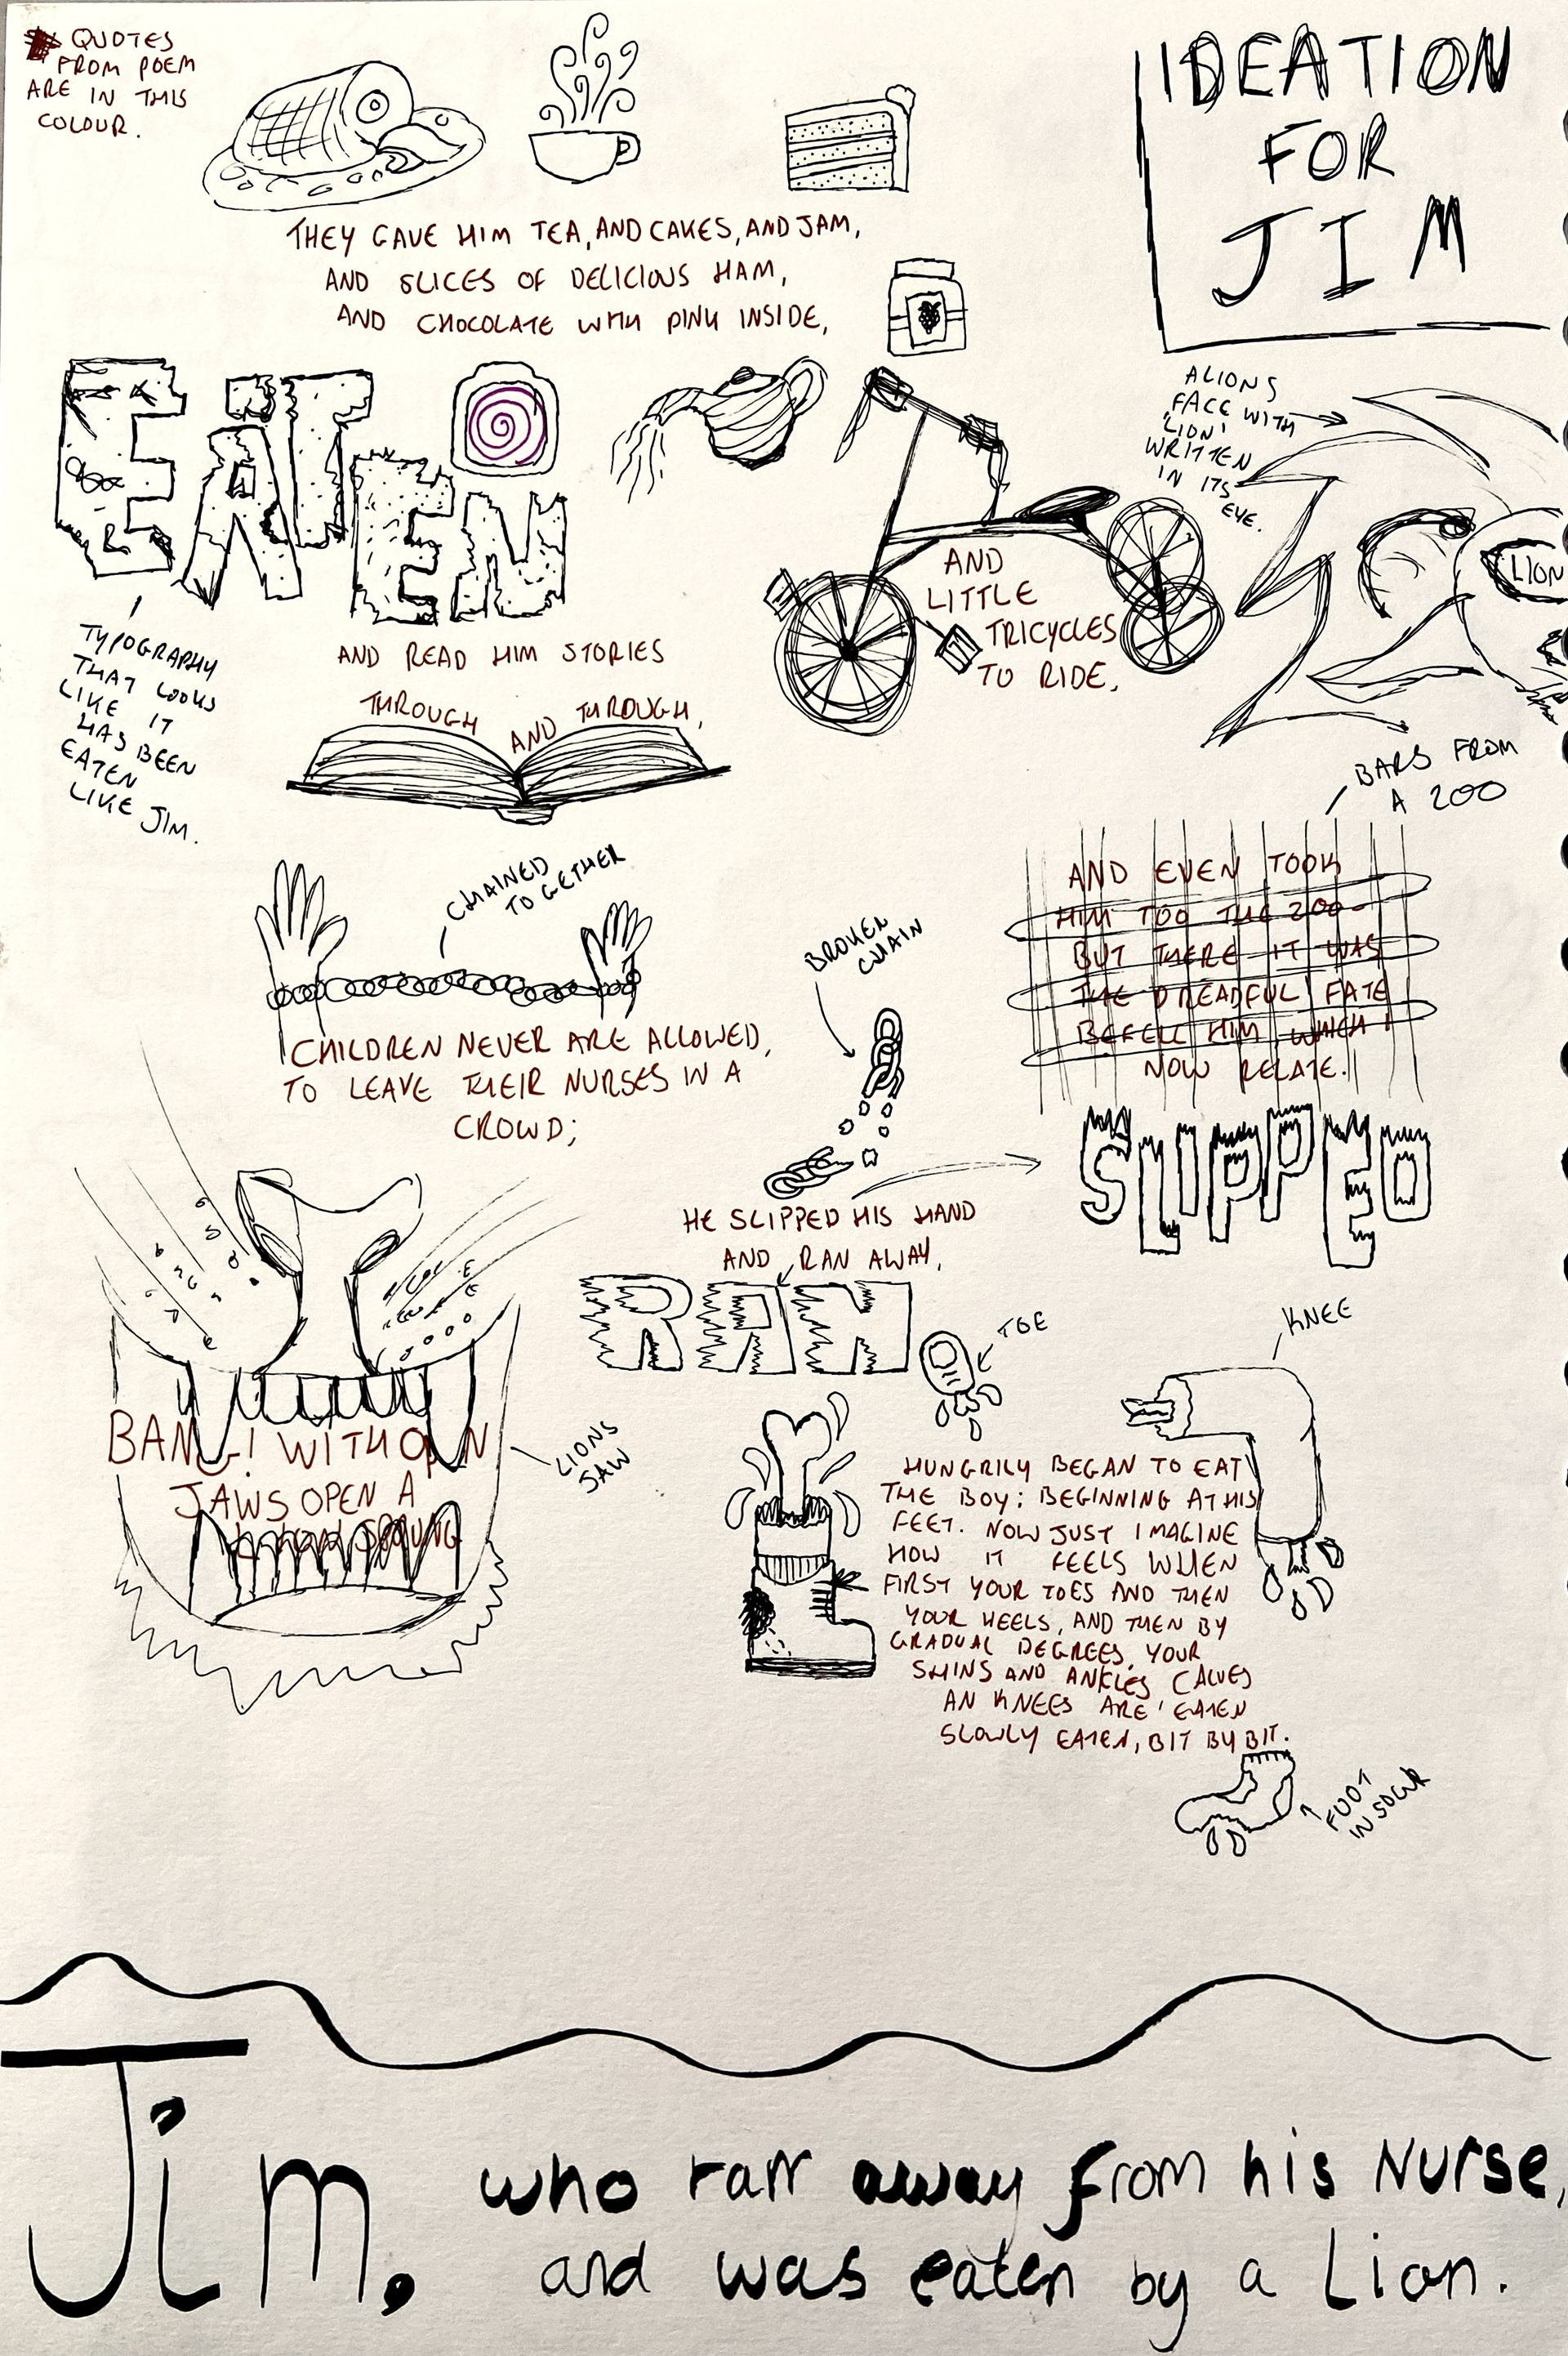 QUOTES
FROM POEM
ARE IN THIS
COLOUR.
IDEATION
FOR
JIM
THEY GAVE HIM TEA, AND CAKES, AND JAM,
AND SLICES OF DELICIOUS HAM,
AND CHOCOLATE WITH PINK INSIDE,
EATEN
TYPOGRAPHY
THAT LOOKS
LIKE IT
HAS BEEN
EATEN
LIKE JIM.
AND
LITTLE
TRICYCLES
TO RIDE,
A LIONS
FACE WITH
'LION'
WRITTEN
IN ITS
EYE.
LION
AND READ HIM STORIES
THROUGH AND THROUGH,
BARS FROM
A ZOO
CHAINED
TOGETHER
CHILDREN NEVER ARE ALLOWED,
TO LEAVE THEIR NURSES IN A
CROWD;
BROKEN
CHAIN
AND EVEN TOOK
HIM TOO THE ZOO-
BUT THERE IT WAS
THE DREADFUL FATE
BEFELL HIM, WHICH I
NOW RELATE.
HE SLIPPED HIS HAND
AND RAN AWAY,
SLIPPED
RAN
BANG! WITH OPEN
JAWS OPEN A
SPRUNG
LIONS
JAW
TOE
KNEE
HUNGRILY BEGAN TO EAT
THE BOY: BEGINNING AT HIS
FEET. NOW JUST IMAGINE
HOW IT FEELS WHEN
FIRST YOUR TOES AND THEN
YOUR HEELS, AND THEN BY
GRADUAL DEGREES, YOUR
SHINS AND ANKLES CALVES
AN KNEES ARE EATEN
SLOWLY EATEN, BIT BY BIT.
FOOT
IN SOCK
Jim,
who ran away from his Nurse,
and was eaten by a Lion.